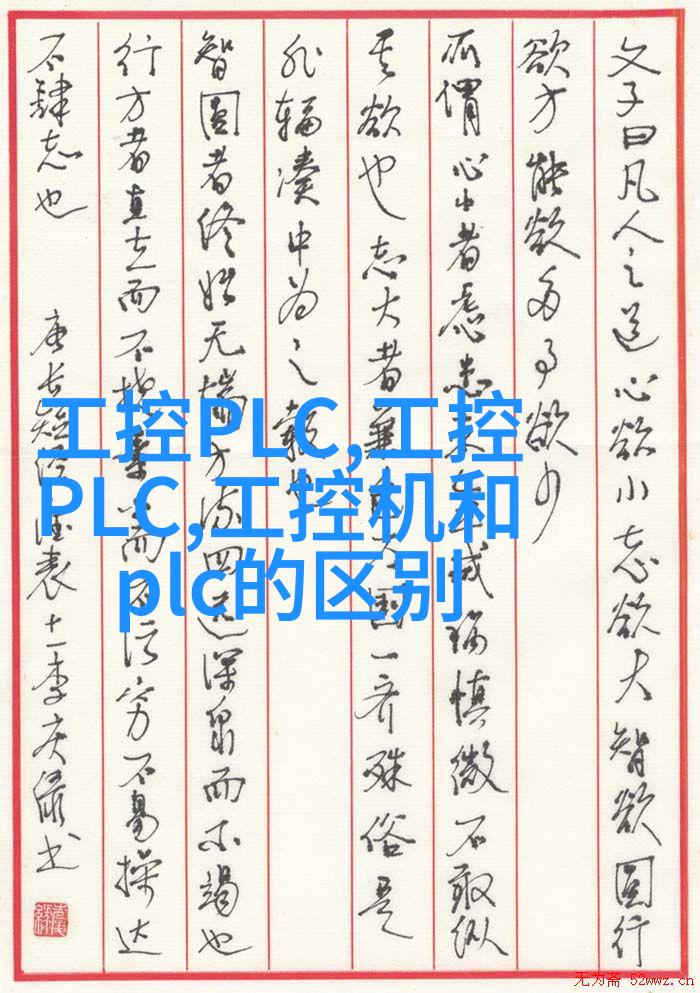 文子曰凡人之道心欲小志欲大智欲圆行
欲方能欲多事欲少
所谓心小者虑患未生戒祸慎微不敢纵
其欲也志大者兼国一齐殊俗是
非辐凑中为之毂也
智圆者终始无端方流四远深泉而不竭也
行方者直立而不挠素而不污穷不易操达
不肆志也
唐长短经德表十一李庆书
工控PLC,工控
PLC,工控机和
plc的区别
无为斋 52wwz.cn